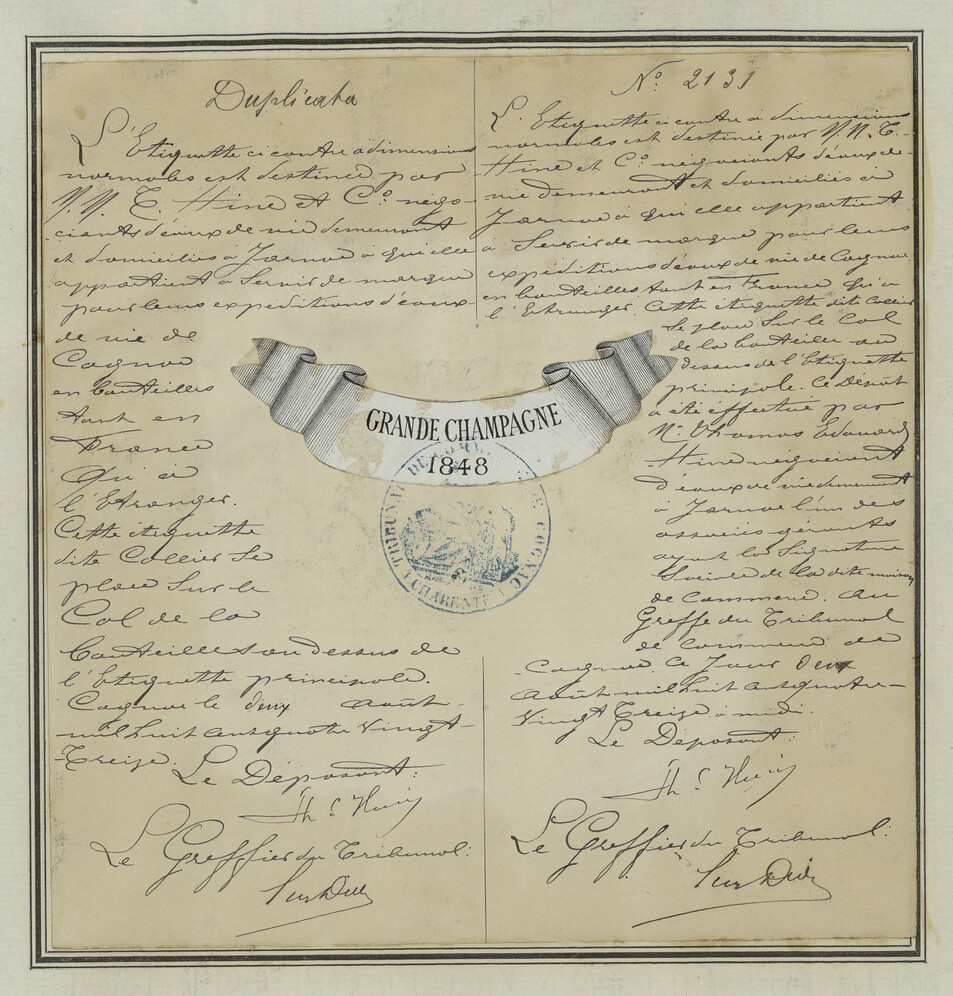 Duplicata
L'Etiquette ci contre à dimensions
normales est destinée par
M.M. T. Hine et Co. négo-
ciants d'eaux de vie demeurant
et domiciliés à Jarnac à qui elle
appartient à Servir de marque
pour leurs expéditions d'eaux-
de vie de
Cognac
en bouteilles
tant en
France
Qu'à
l'Etranger.
Cette étiquette
dite Collier Se
place Sur le
Col de la
bouteille au dessus de
l'Etiquette principale.
Cognac le deux Août
mil huit cent quatre Vingt-
Treize. Le Déposant:
Th. E. Hine
Le Greffier du Tribunal:
No. 2131
L'Etiquette ci contre à dimensions
normales est destinée par M.M. T.
Hine et Co. négociants d'eaux de
vie demeurant et domiciliés à
Jarnac à qui elle appartient
à Servir de marque pour leurs
expéditions d'eaux de vie de Cognac
en bouteilles tant en France qu'à
l'Etranger. Cette étiquette dite Collier
Se place Sur le Col
de la bouteille au
dessus de l'Etiquette
principale. Ce Dépôt
a été effectué par
Mr. Thomas Edouard
Hine négociant
d'eaux de vie demeurant
à Jarnac l'un des
associés gérants
ayant la Signature
Sociale de la dite maison
de Commerce. Au
Greffe du Tribunal
de Commerce de
Cognac, Ce Jour deux
Août mil huit cent quatre-
Vingt Treize à midi.
Le Déposant:
Th. E. Hine
Le Greffier du Tribunal:
GRANDE CHAMPAGNE
1848
TRIBUNAL DE COMMERCE DE COGNAC
(CHARENTE)